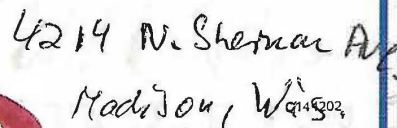 4214 N. Sherman Av
Madison, Wis